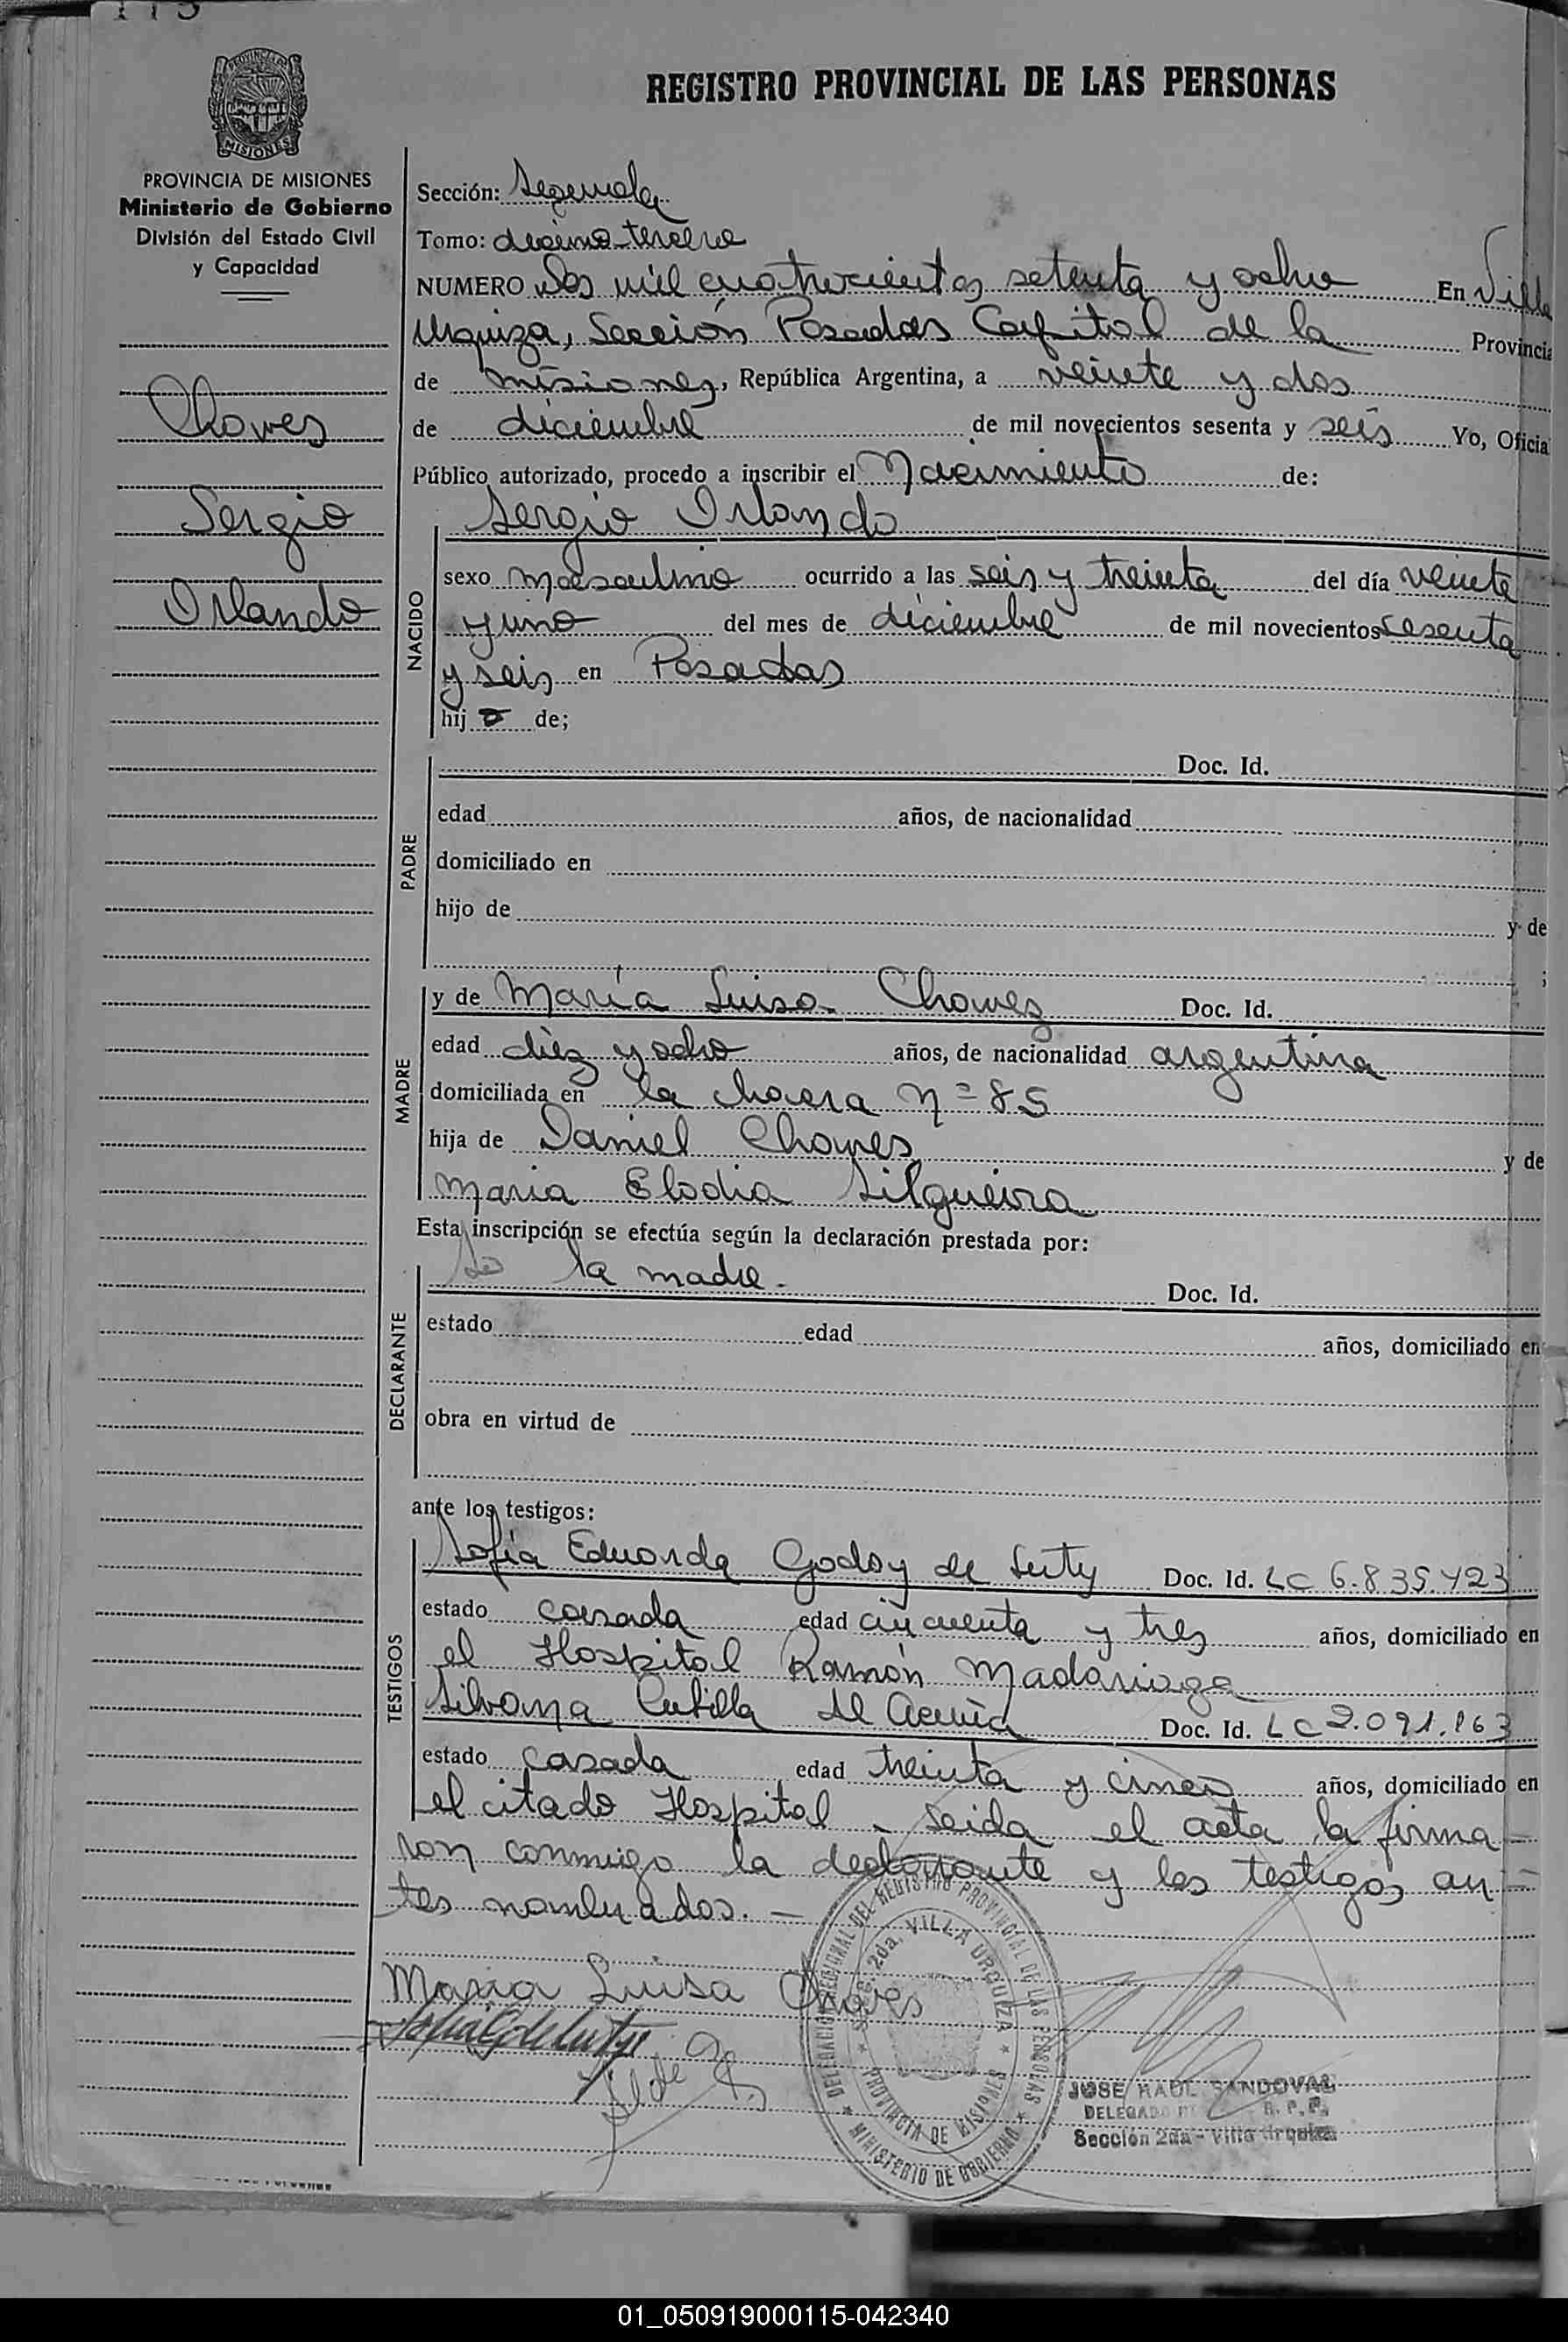 REGISTRO PROVINCIAL DE LAS PERSONAS
PROVINCIA DE MISIONES
MISIONES
PROVINCIA DE MISIONES
Ministerio de Gobierno
División del Estado Civil
y Capacidad
Choves
Sergio
Orlando
Sección: Segunda
Tomo: décimo tercero
NUMERO Dos mil cuatrocientos setenta y ocho En Villa
Urquiza, Sección Posadas Capital de la Provincia
de misiones, República Argentina, a veinte y dos
de diciembre de mil novecientos sesenta y seis Yo, Oficial
Público autorizado, procedo a inscribir el Nacimiento de:
NACIDO
Sergio Orlando
sexo masculino ocurrido a las seis y treinta del día veinte
y uno del mes de diciembre de mil novecientos sesenta
y seis en Posadas
hijo de;
PADRE
Doc. Id.
edad años, de nacionalidad
domiciliado en
hijo de y de
;
MADRE
y de María Luisa Choves Doc. Id.
edad diez y ocho años, de nacionalidad argentina
domiciliada en la chacra Nº 85
hija de Daniel Choves y de
Maria Elodia Silgueira
Esta inscripción se efectúa según la declaración prestada por:
DECLARANTE
la madre.- Doc. Id.
estado edad años, domiciliado en
obra en virtud de
ante los testigos:
TESTIGOS
Sofia Eduarda Godoy de Doc. Id. LC 6.835.423
estado casada edad cincuenta y tres años, domiciliado en
el Hospital Ramón Madariaga
Silvana de Acuña Doc. Id. LC 2.091.163
estado casada edad treinta y cinco años, domiciliado en
el citado Hospital - Leida el acta la firma=
ron conmigo la declarante y los testigos an=
tes nombrados.-
Maria Luisa Choves
DELEGACION REGIONAL DEL REGISTRO PROVINCIAL DE LAS PERSONAS
Secc. 2da. VILLA URQUIZA
PROVINCIA DE MISIONES
MINISTERIO DE GOBIERNO
JOSE RAUL SANDOVAL
DELEGADO R. P. P.
Sección 2da - Villa Urquiza
01_050919000115-042340